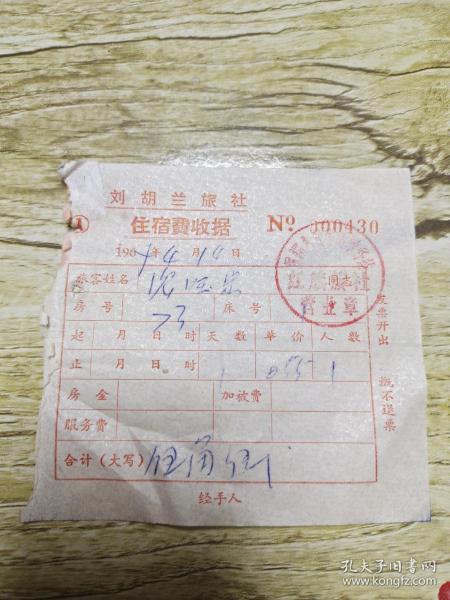 刘胡兰旅社
① 住宿费收据 Nº 000430
196 年 4 月 14 日
旅客姓名
房号 床号
起 月 日 时 天数 单价 人数
止 月 日 时 1 0.55 1
房金 加放费
服务费
合计(大写) 伍角伍
经手人
营业章
发票开出 概不退票
孔夫子旧书网
www.kongfz.com